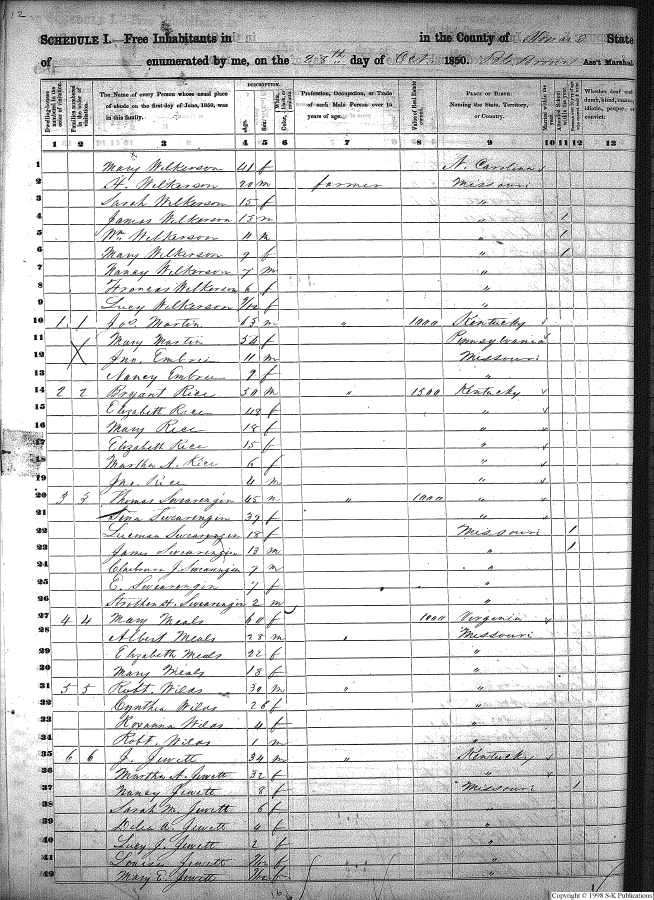 12
SCHEDULE I. Free Inhabitants in in the County of Howard State
of enumerated by me, on the 28th day of Oct 1850. Ass't Marshal
Dwelling-houses numbered in the order of visitation.
Families numbered in the order of visitation.
The Name of every Person whose usual place of abode on the first day of June, 1850, was in this family.
DESCRIPTION.
Age.
Sex.
Color, White, black, or mulatto.
Profession, Occupation, or Trade of each Male Person over 15 years of age.
Value of Real Estate owned.
PLACE OF BIRTH Naming the State, Territory, or Country.
Married within the year.
Attended School within the year.
Whether deaf and dumb, blind, insane, idiotic, pauper, or convict.
1 2 3 4 5 6 7 8 9 10 11 12 13
1 Mary Wilkerson 41 f N. Carolina
2 H. Wilkerson 20 m farmer Missouri
3 Sarah Wilkerson 15 f "
4 James Wilkerson 13 m " 1
5 Wm Wilkerson 11 m " 1
6 Mary Wilkerson 9 f " 1
7 Nancy Wilkerson 7 m "
8 Frances Wilkerson 6 f "
9 Lucy Wilkerson f "
10 1 1 Jos Martin 63 m " 1000 Kentucky
11 Mary Martin 54 f Pennsylvania
12 Jno. Embree 11 m Missouri
13 Nancy Embree 9 f "
14 2 2 Bryant Rice 50 m " 1500 Kentucky
15 Elizabeth Rice 48 f "
16 Mary Rice 18 f "
17 Elizabeth Rice 15 f "
18 Martha A. Rice 6 f "
19 Jno. Rice 4 m "
20 3 3 Thomas Swearengin 45 m " 1000 "
21 Swearengin 39 f "
22 Swearengin 18 f Missouri 1
23 James Swearengin 13 m " 1
24 Claibourn J. Swearengin 9 m "
25 E. Swearengin 7 f "
26 Swearengin 2 m "
27 4 4 Mary Meals 60 f 1000 Virginia
28 Albert Meals 28 m " Missouri
29 Elizabeth Meals 22 f "
30 Mary Meals 18 f "
31 5 5 Robt. Wilds 30 m " "
32 Cynthia Wilds 26 f "
33 Roxanna Wilds 4 f "
34 Robt. Wilds 1 m "
35 6 6 J. Jewett 34 m " Kentucky
36 Martha A. Jewett 32 f "
37 Nancy Jewett 8 f Missouri 1
38 Sarah M. Jewett 6 f "
39 Delia A. Jewett 4 f "
40 Lucy J. Jewett 2 f "
41 Louisa Jewett f "
42 Mary E. Jewett f "
Copyright © 1998 S-K Publications